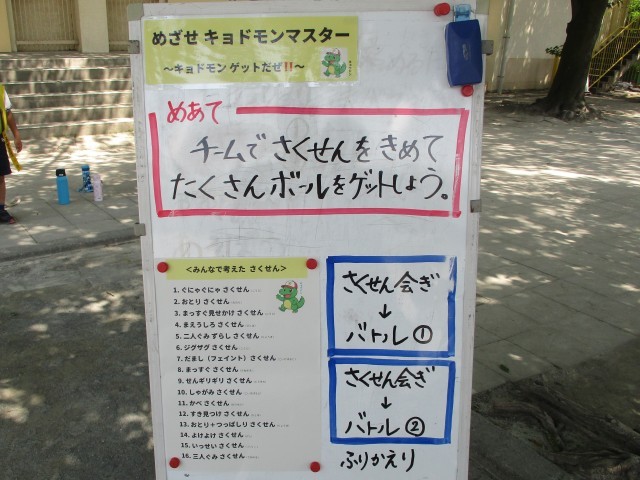 めざせ キョドモンマスター
～キョドモン ゲットだぜ!!～
めあて
チームで さくせんを きめて
たくさん ボールを ゲットしよう。
＜みんなで考えた さくせん＞
1. ぐにゃぐにゃ さくせん
2. おとり さくせん
3. まっすぐ見せかけ さくせん
4. まえうしろ さくせん
5. 二人ぐみ ずらし さくせん
6. ジグザグ さくせん
7. だまし（フェイント）さくせん
8. まっすぐ さくせん
9. せんギリギリ さくせん
10. しゃがみ さくせん
11. かべ さくせん
12. すき見つけ さくせん
13. おとり＋つっぱしり さくせん
14. よけよけ さくせん
15. いっせい さくせん
16. 三人ぐみ さくせん
さくせん会ぎ
↓
バトル ①
さくせん会ぎ
↓
バトル ②
ふりかえり